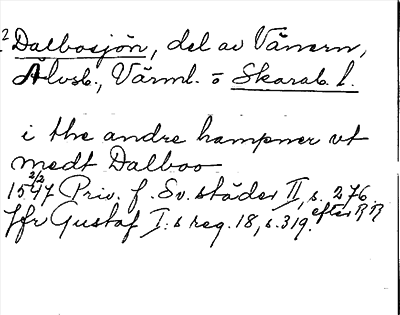 2 Dalbosjön, del av Vänern,
Älvsb., Värml. o Skarab. l.
i the andre hampner vt
medt Dalboo
2/2
1547 Priv. f. Sv. städer II, s. 276
efter RR
Jfr Gustaf I:s reg. 18, s. 319.